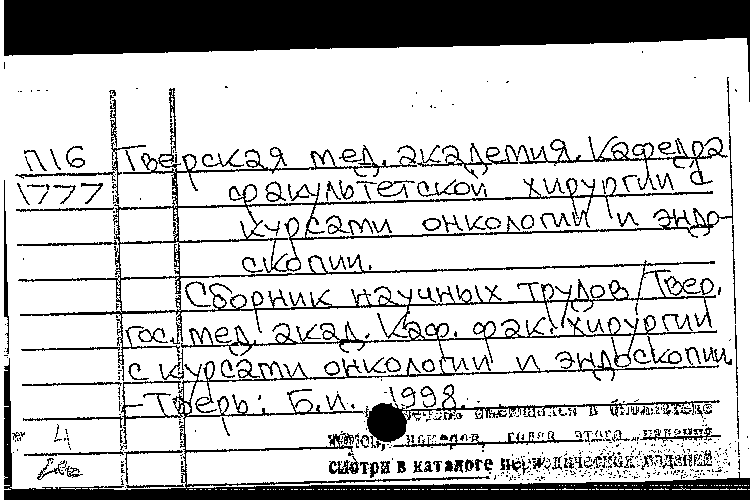 П16 Тверская мед. академия. Кафедра
1777 факультетской хирургии с
курсами онкологии и эндо-
скопии.
Сборник научных трудов / Твер.
гос. мед. акад. Каф. фак. хирургии
с курсами онкологии и эндоскопии.
- Тверь: Б.и. 1998.
имеющихся в библиотеке
4 номеров, годах этого издания
смотри в каталоге периодических изданий